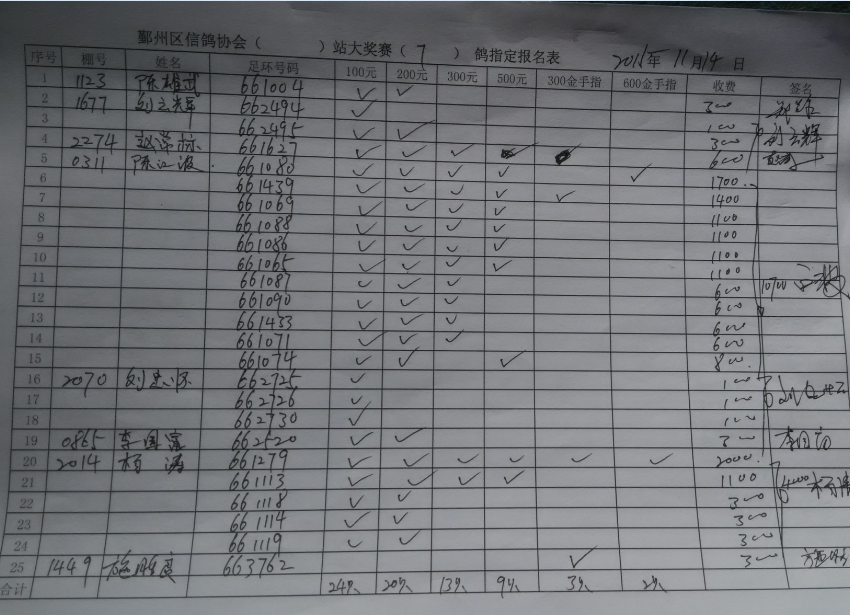 鄞州区信鸽协会（ ）站大奖赛（ 7 ）鸽指定报名表 2011年 11月14日
序号 棚号 姓名 足环号码 100元 200元 300元 500元 300金手指 600金手指 收费 签名
1 1123 陈雄武 661004 ✓ ✓ 300
2 1677 刘云辉 662494 ✓ 100 刘云辉
3 662495 ✓ ✓ 300
4 2274 赵荣标 661627 ✓ ✓ ✓ 600
5 0311 陈江波 661080 ✓ ✓ ✓ ✓ ✓ 1700
6 661439 ✓ ✓ ✓ ✓ ✓ 1400
7 661069 ✓ ✓ ✓ ✓ 1100
8 661088 ✓ ✓ ✓ ✓ 1100
9 661086 ✓ ✓ ✓ ✓ 1100
10 661065 ✓ ✓ ✓ ✓ 1100
11 661087 ✓ ✓ ✓ 600 10700
12 661090 ✓ ✓ ✓ 600
13 661433 ✓ ✓ ✓ 600
14 661071 ✓ ✓ ✓ 600
15 661074 ✓ ✓ ✓ 800
16 2070 662725 ✓ 100
17 662726 ✓ 100
18 662730 ✓ 100
19 0865 李国富 662520 ✓ ✓ 300
20 2014 杨涛 661279 ✓ ✓ ✓ ✓ ✓ ✓ 2000
21 661113 ✓ ✓ ✓ ✓ 1100 4000 杨涛
22 661118 ✓ ✓ 300
23 661114 ✓ ✓ 300
24 661119 ✓ ✓ 300
25 1449 施胜度 663762 ✓ 300
合计 24个 20个 13个 9个 3个 2个